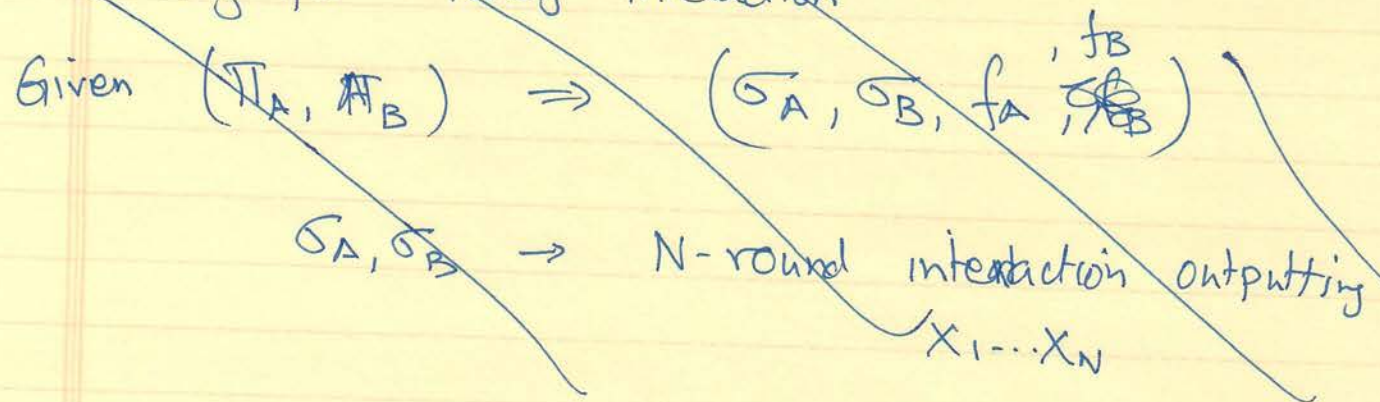 Given (π_A, π_B) ⇒ (σ_A, σ_B, f_A, f_B)
σ_A, σ_B → N-round interaction outputting
X_1...X_N